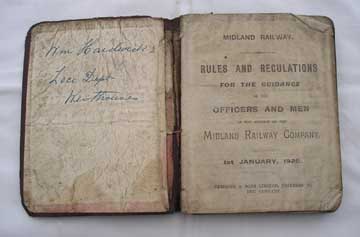 Wm Hardwick
Loco Dept
MIDLAND RAILWAY.
RULES AND REGULATIONS
FOR THE GUIDANCE
OF THE
OFFICERS AND MEN
IN THE SERVICE OF THE
MIDLAND RAILWAY COMPANY.
1st JANUARY,